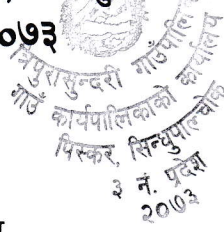 ०७३
त्रिपुरासुन्दरी गाउँपालिका
गाउँ कार्यपालिकाको कार्यालय
पिस्कर, सिन्धुपाल्चोक
३ नं. प्रदेश
२०७३